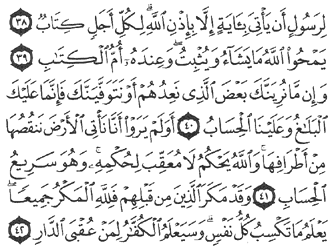 لِرَسُولٍ أَن يَأْتِيَ بِـَٔايَةٍ إِلَّا بِإِذْنِ ٱللَّهِ ۗ لِكُلِّ أَجَلٍ كِتَابٌ ﴿٣٨﴾
يَمْحُوا۟ ٱللَّهُ مَا يَشَآءُ وَيُثْبِتُ ۖ وَعِندَهُۥٓ أُمُّ ٱلْكِتَـٰبِ ﴿٣٩﴾
وَإِن مَّا نُرِيَنَّكَ بَعْضَ ٱلَّذِى نَعِدُهُمْ أَوْ نَتَوَفَّيَنَّكَ فَإِنَّمَا عَلَيْكَ
ٱلْبَلَـٰغُ وَعَلَيْنَا ٱلْحِسَابُ ﴿٤٠﴾ أَوَلَمْ يَرَوْا۟ أَنَّا نَأْتِى ٱلْأَرْضَ نَنقُصُهَا
مِنْ أَطْرَافِهَا ۚ وَٱللَّهُ يَحْكُمُ لَا مُعَقِّبَ لِحُكْمِهِۦ ۚ وَهُوَ سَرِيعُ
ٱلْحِسَابِ ﴿٤١﴾ وَقَدْ مَكَرَ ٱلَّذِينَ مِن قَبْلِهِمْ فَلِلَّهِ ٱلْمَكْرُ جَمِيعًا ۖ
يَعْلَمُ مَا تَكْسِبُ كُلُّ نَفْسٍ ۗ وَسَيَعْلَمُ ٱلْكُفَّـٰرُ لِمَنْ عُقْبَى ٱلدَّارِ ﴿٤٢﴾